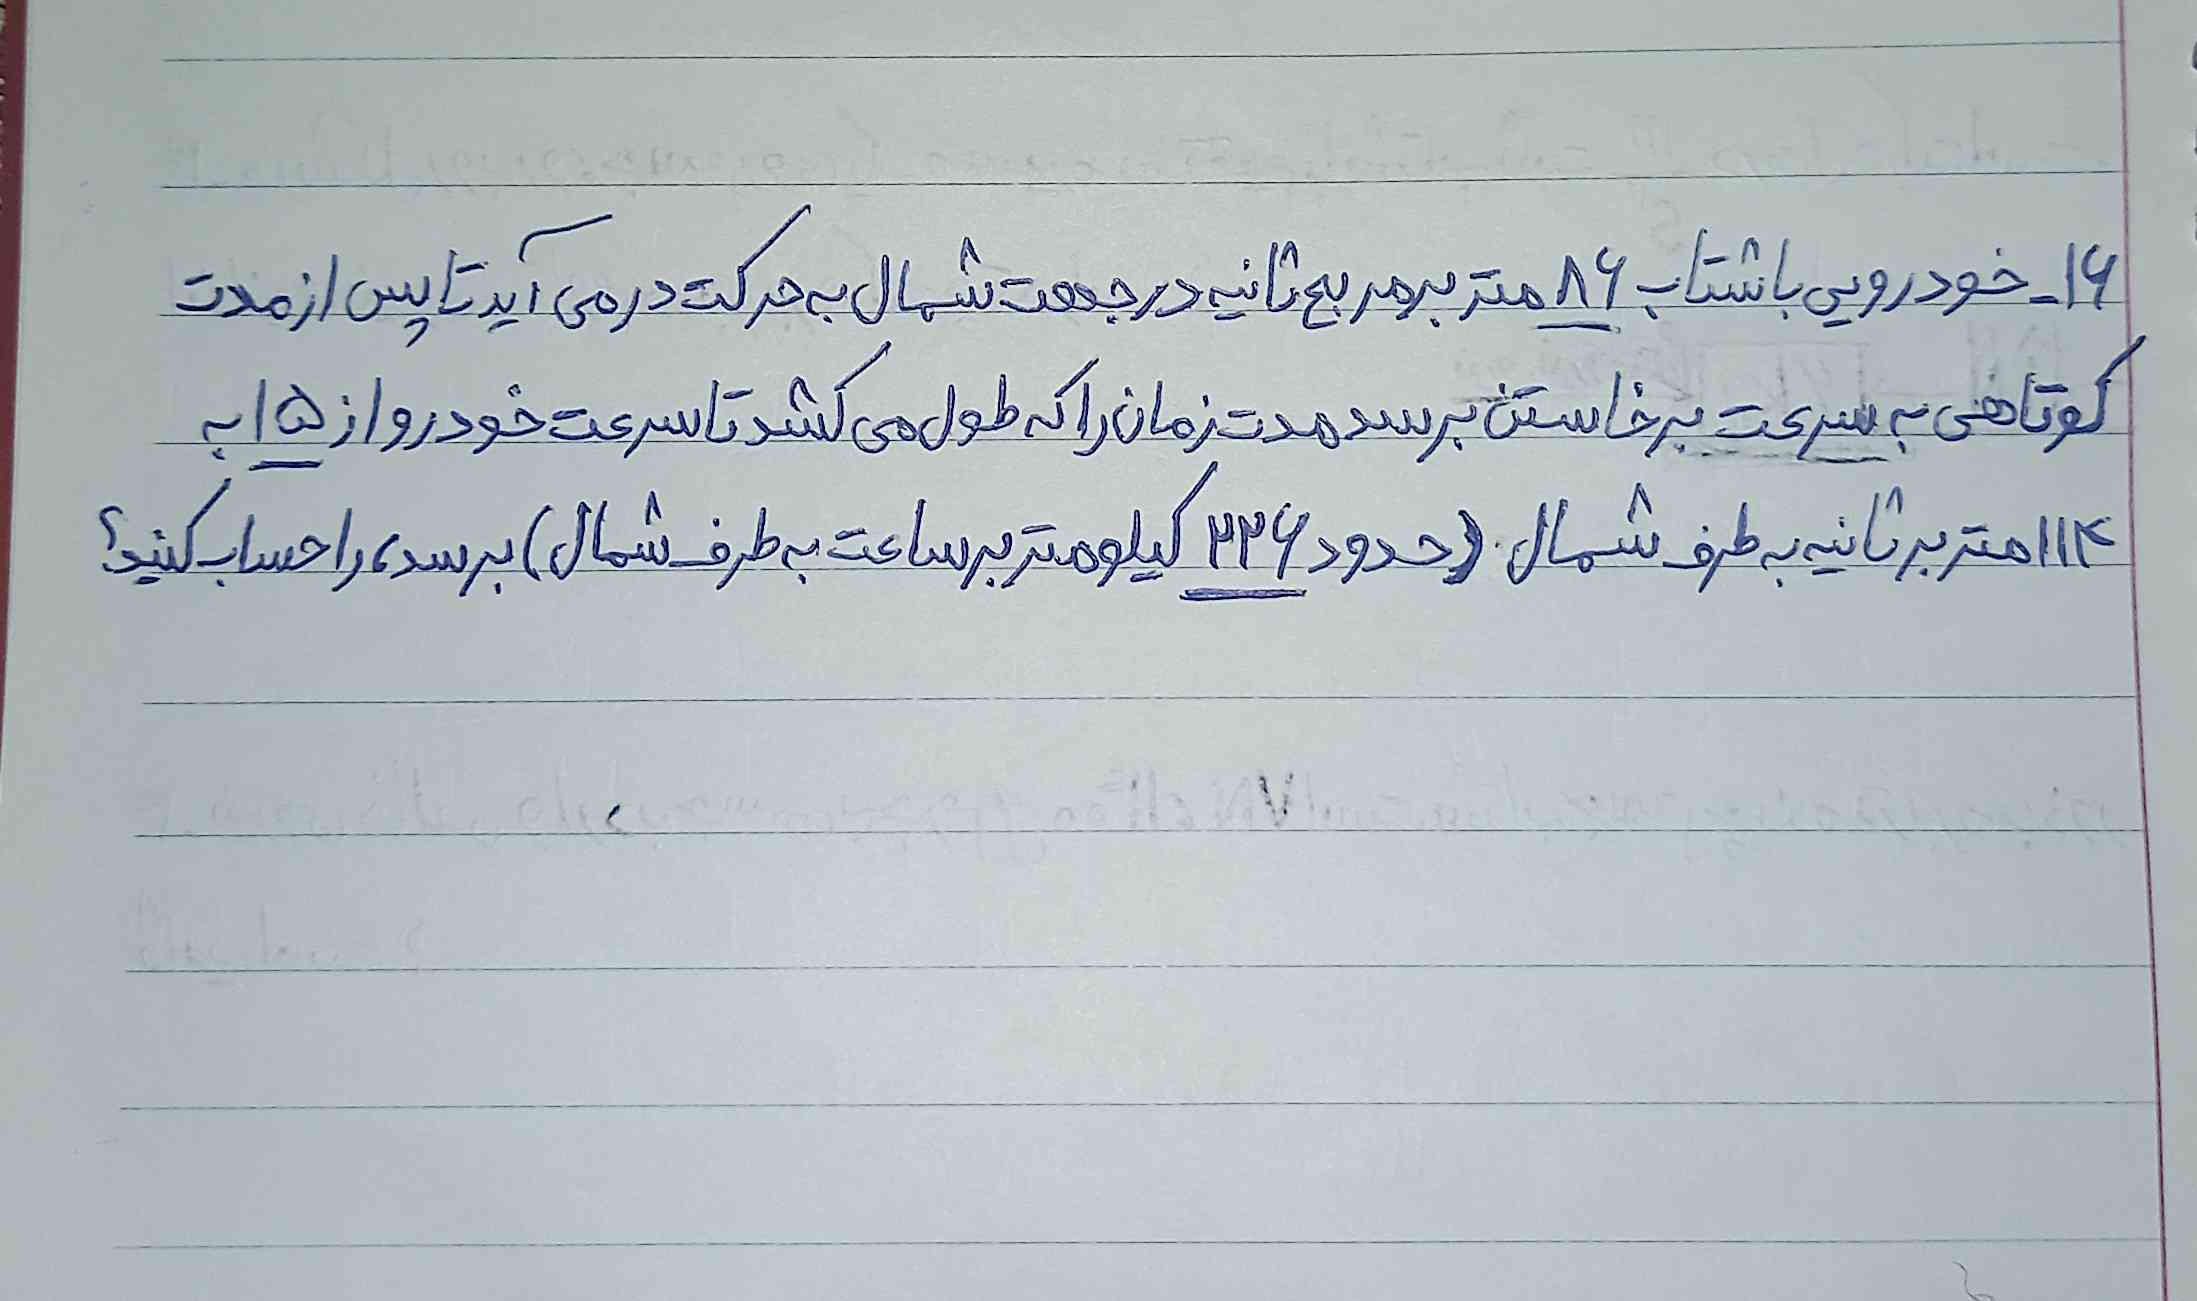 ۱۶- خودرویی با شتاب ۸۶ متر بر مربع ثانیه در جهت شمال به حرکت در می آید تا پس از مدت
کوتاهی به سرعت برخاستن برسد مدت زمان را که طول می کشد تا سرعت خودرو از ۱۵ به
۱۱۴ متر بر ثانیه به طرف شمال (حدود ۲۲۶ کیلومتر بر ساعت به طرف شمال) برسد، را حساب کنید؟